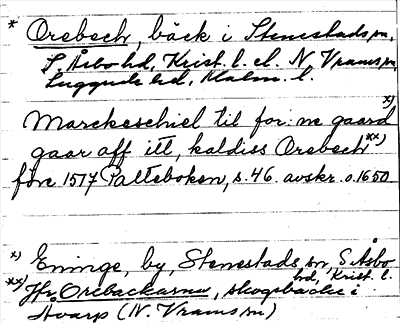 * Orebech, bäck i Stenestads sn,
S. Åsbo hd, Krist. l. el. N. Vrams sn,
Luggude hd, Malm. l.
Marckeschiel til for: ne gaard x)
gaar aff itt, kaldiss Orebech xx)
före 1577 Palteboken, s. 46. avskr. o. 1650
x) Eninge, by, Stenestads sn, S Åsbo
hd, Krist. l.
xx) Jfr Orebackarna, skogsbacke i
Svarp (N. Vrams sn)